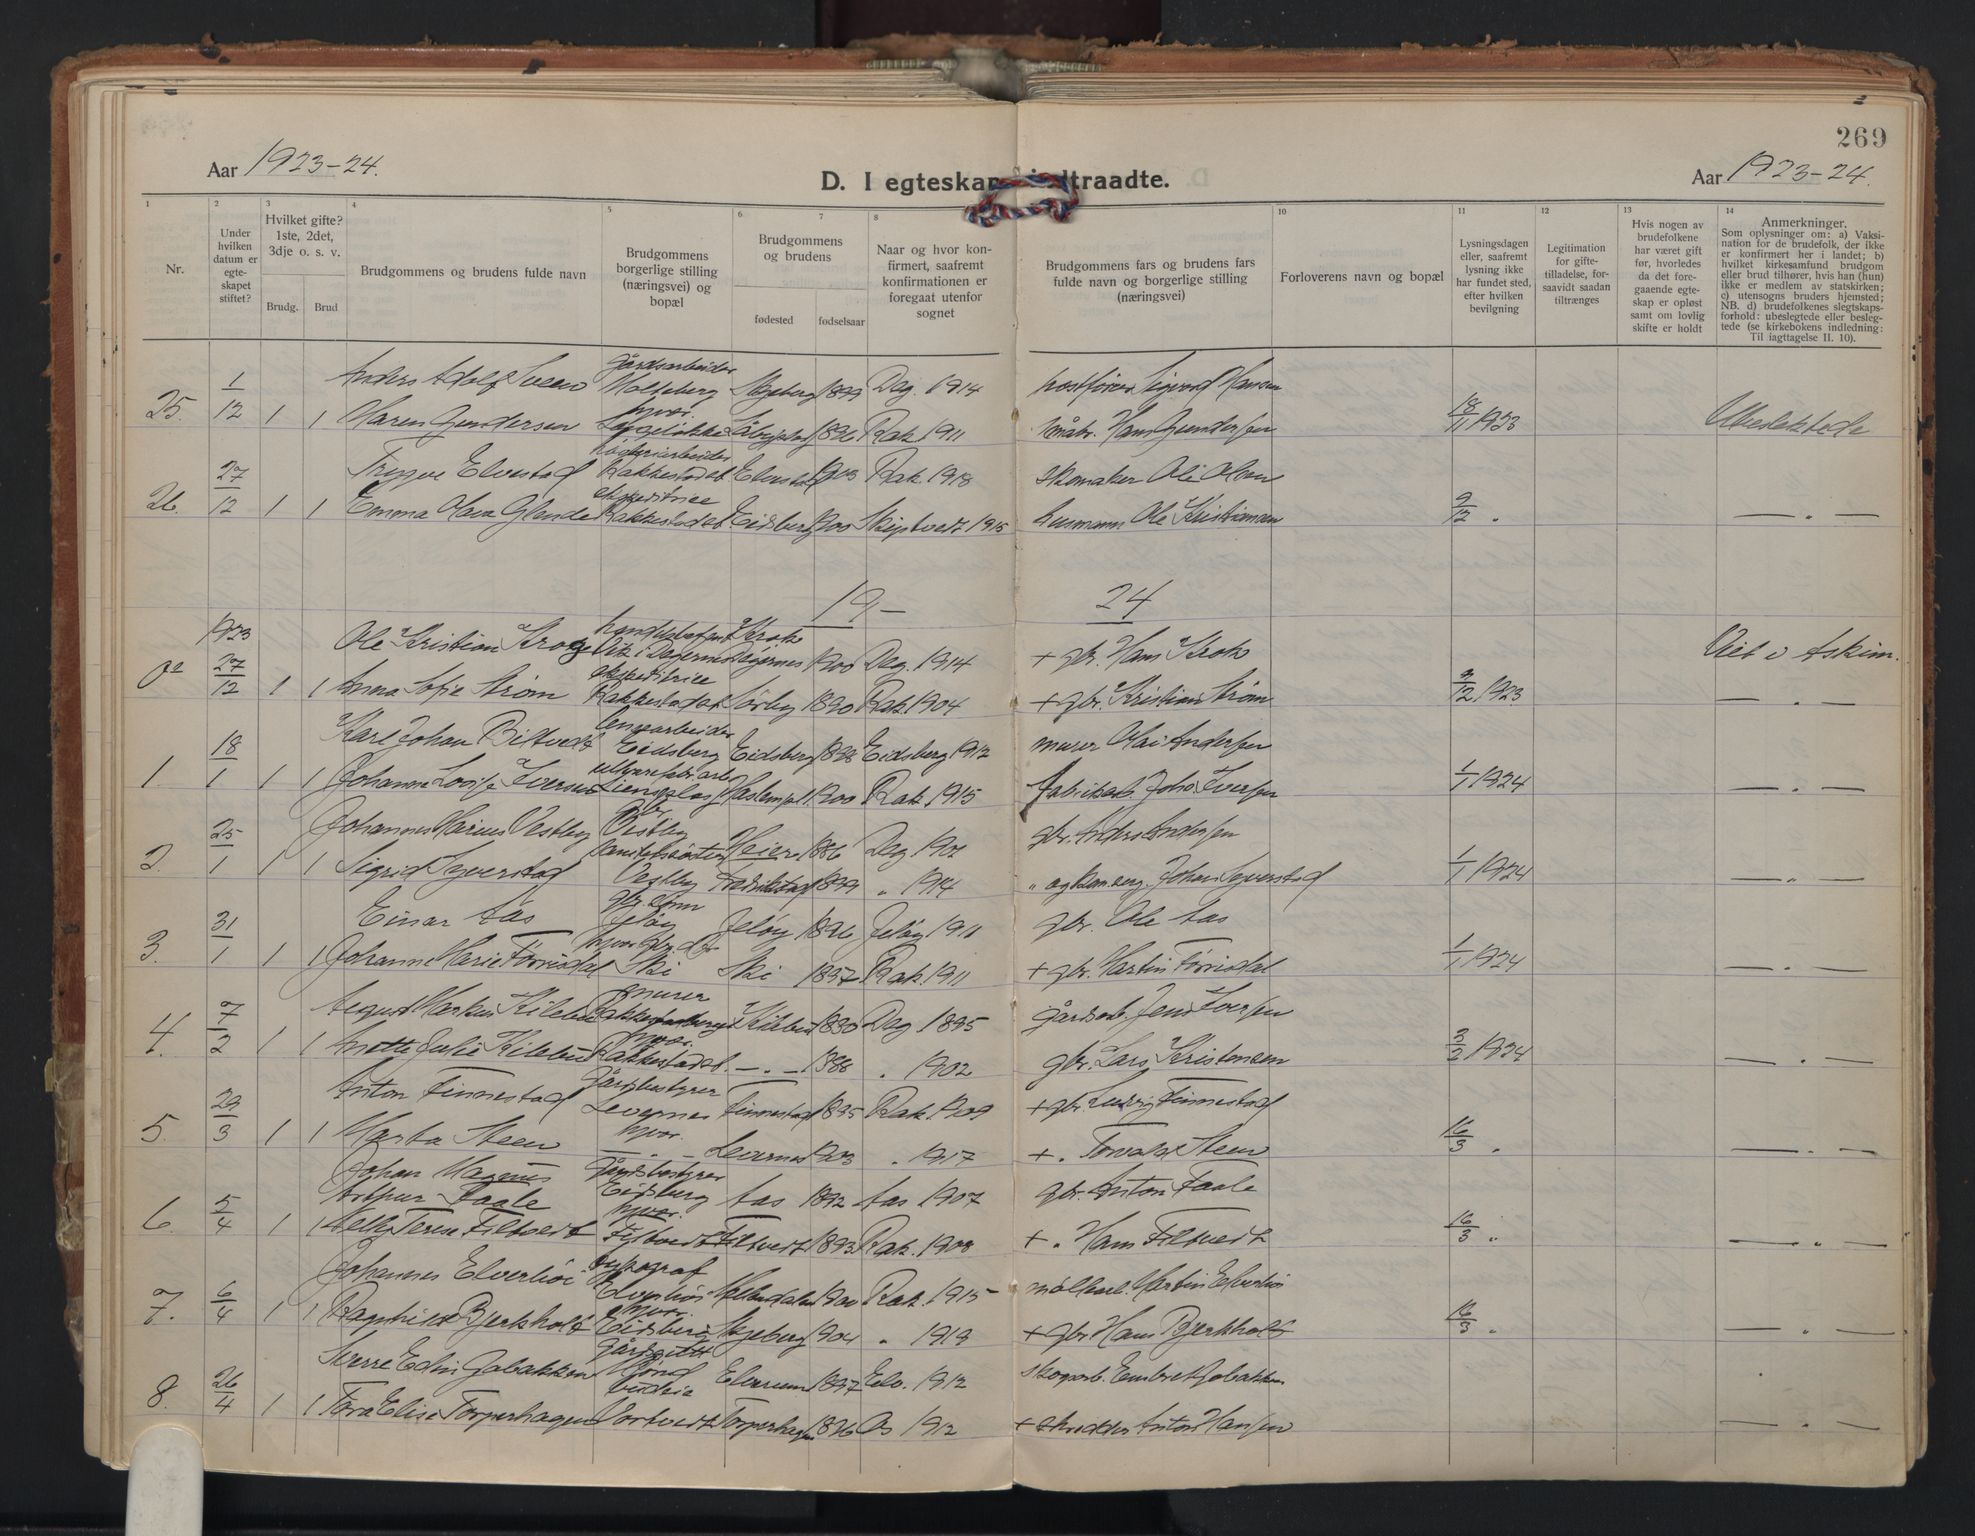 269
Aar 1923-24.
D. I egteskap indtraadte.
Aar 1923-24.
1 2 3 4 5 6 7 8 10 11 12 13 14
Nr.
Under hvilken datum er egteskapet stiftet?
Hvilket gifte? 1ste, 2det, 3dje o. s. v.
Brudg. Brud
Brudgommens og brudens fulde navn
Brudgommens borgerlige stilling (næringsvei) og bopæl
Brudgommens og brudens
fødested fødselsaar
Naar og hvor konfirmert, saafremt konfirmationen er foregaat utenfor sognet
Brudgommens fars og brudens fars fulde navn og borgerlige stilling (næringsvei)
Forloverens navn og bopæl
Lysningsdagen eller, saafremt lysning ikke har fundet sted, efter hvilken bevilgning
Legitimation for giftetilladelse, forsaavidt saadan tiltrænges
Hvis nogen av brudefolkene har været gift før, hvorledes da det foregaaende egteskap er opløst samt om lovlig skifte er holdt
Anmerkninger.
Som oplysninger om: a) Vaksination for de brudefolk, der ikke er konfirmert her i landet; b) hvilket kirkesamfund brudgom eller brud tilhører, hvis han (hun) ikke er medlem av statskirken; c) utensogns bruders hjemsted; NB. d) brudefolkenes slegtskapsforhold: ubeslegtede eller beslegtede (se kirkebokens indledning: Til iagttagelse II. 10).
1/12 Anders Adolf Sveen Gårdsarbeider Holteberg Skjeberg 1899 Deg. 1914 hestfører Sigvard Hansen
25. 1 1 Maren Gundersen hvor. 1896 Rak. 1911 småbr. Hans Gundersen 18/11 1923 Ubeslektede
27/12 Trygve Elvestad Rakkestadet Elvestad 1903 Rak. 1918 skomaker Ole Olsen
26. 1 1 Emma Olava Glende ekspeditrice Rakkestadet Eidsberg 1900 Skiptvedt 1915 husmann Ole Kristiansen 9/12 " — " —
19— 24
1923 Ole Kristian Krog Krok Degernes 1900 Deg. 1914 + gbr. Hans Krok Viet i Askim.
0a 27/12 1 1 Anna Sofie Strøm ekspeditrice Rakkestadet Sørby 1890 Rak. 1904 + gbr. Kristian Strøm 9/12 1923 — " —
18/1 Karl Johan Biltvedt Eidsberg Eidsberg 1898 Eidsberg 1912 murer Olai Andersen
1. 1 1 Johanne Lovise Iversen 1900 Rak. 1915 Johs. Iversen 1/1 1924 — " —
25/1 Johannes Marius Vestby gbr. Vestby Heier 1886 Deg. 1902 gbr. Anders Andersen
2. 1 1 Sigrid Syverstad Vestby Fredrikstad 1899 " 1914 Johan Syverstad 1/1 1924 — " —
31/1 Einar Aas gbr. sønn Jeløy Jeløy 1896 Jeløy 1911 gbr. Ole Aas
3. 1 1 Johanne Marie Førrisdal Ski Ski 1897 Rak. 1911 + gbr. Martin Førrisdal 1/1 1924 — " —
7/2 August Markus Kilebu murer Kilebu 1880 Deg 1895 gårdsarb. Jens Iversen
4. 1 1 Anette Julie Kilebu hvor. Rakkestadet. — " — 1888 " 1902 gbr. Lars Kristensen 3/2 1924 — " —
29/3 Anton Finnestad Gårdsbestyrer Levernes Finnestad 1895 Rak. 1909 + gbr. Ludvig Finnestad
5. 1 1 Marta Steen hvor. — " — Levernes 1903 " 1917 + " Torvald Steen 16/3 " — " —
5/4 Johan Magnus Arthur Faale Gårdsbestyrer Eidsberg Aas 1892 Aas 1907 gbr. Anton Faale
6 1 1 Filtvedt hvor. Filtvedt 1893 Rak. 1908 + " Hans Filtvedt 16/3 " — " —
6/4 Johannes Elverhöi typograf 1900 Rak. 1915 Martin Elverhöi
7. 1 1 Ragnhild Bjerkholt hvor. Eidsberg Skjeberg 1904 " 1919 + gbr. Hans Bjerkholt 16/3 " — " —
26/4 Sverre Edvin Jobakken Elverum 1897 Elv. 1912 skogarb. Embret Jobakken
8. 1 1 Tora Elise Torperhagen Torperhagen 1896 Os 1912 + skredder Anton Hansen — " —